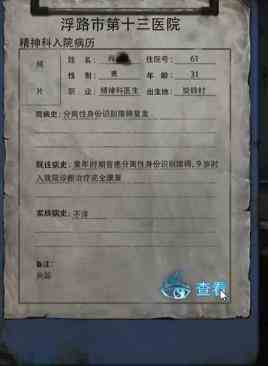 浮路市第十三医院
精神科入院病历
照
片
姓 名： 住院号： 61
性 别： 男 年 龄： 31
职 业： 精神科医生 出生地：
现病史：分离性身份识别障碍复发
既往病史：童年时期曾患分离性身份识别障碍，9岁时
入我院诊断治疗完全康复
家族病史：不详
备注：
查看